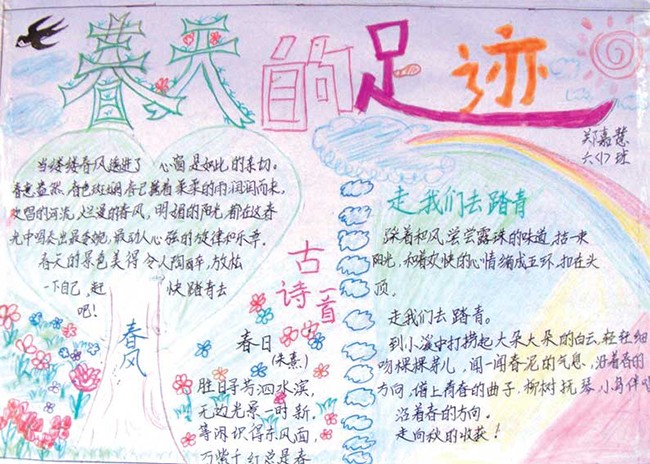 春天的足迹
郑嘉慧
六(7)班
当缕缕春风透进了 心窗是如此的亲切。
春意盎然,春色斑斓,春已携着柔柔的雨润润而来,
欢唱的河流,烂漫的春风,明媚的阳光,都在这春
光中唱奏出最委婉,最动人心弦的旋律和乐章。
春天的景色美得令人陶醉,放松
一下自己,赶 快踏青去
吧!
春风
古诗一首
春日
(朱熹)
胜日寻芳泗水滨,
无边光景一时新。
等闲识得东风面,
万紫千红总是春
走 我们去踏青
踩着和风尝尝露珠的味道,拈一束
阳光,和着欢快的心情编成玉环,扣在头
顶。
走我们去踏青。
到小溪中打捞起大朵大朵的白云,轻轻细
吻棵棵芽儿,闻一闻春泥的气息,沿着春的
方向,谱上青春的曲子,柳树抚琴,小鸟伴唱
沿着春的方向。
走向秋的收获!